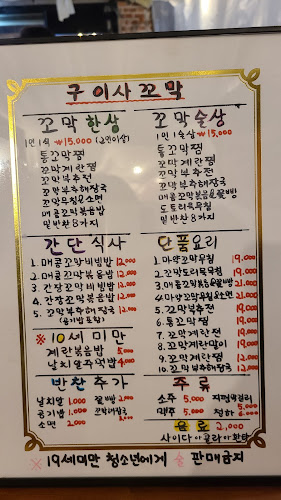 구이사꼬막
꼬막한상
1인1식 ₩15,000 (2인이상)
통꼬막찜
꼬막계란찜
꼬막부추전
꼬막부추해장국
꼬막무침&소면
매콤꼬막볶음밥
밑반찬 8가지
꼬막술상
1인1술상 ₩15,000
통꼬막찜
꼬막계란찜
꼬막부추전
꼬막부추해장국
매콤꼬막볶음&쫄빵
도토리묵무침
밑반찬 8가지
간단식사
1. 매콤꼬막비빔밥 12,000
2. 매콤꼬막볶음밥 12,000
3. 간장꼬막비빔밥 12,000
4. 간장꼬막볶음밥 12,000
5. 꼬막부추해장국 12,000
(공기밥포함)
※ 10세미만
계란볶음밥 5,000
날치알주먹밥 4,000
반찬추가
날치알 1,000
공기밥 1,000
소면 2,000
꼬막해장국
단품요리
1. 마약꼬막무침 19,000
2. 꼬막도토리묵무침 19,000
3. 매콤꼬막볶음& 21,000
4. 마약꼬막무침&소면 21,000
5. 꼬막부추전 19,000
6. 통꼬막찜 19,000
7. 꼬막계란전 19,000
8. 꼬막계란말이 19,000
9. 꼬막계란찜 12,000
10. 꼬막부추해장국 12,000
주류
소주 5,000
맥주 5,000
지평막걸리 5,000
청하 6,000
음료 2,000
사이다 ㅇ 콜라 ㅇ 환타
※ 19세미만 청소년에게 술 판매금지